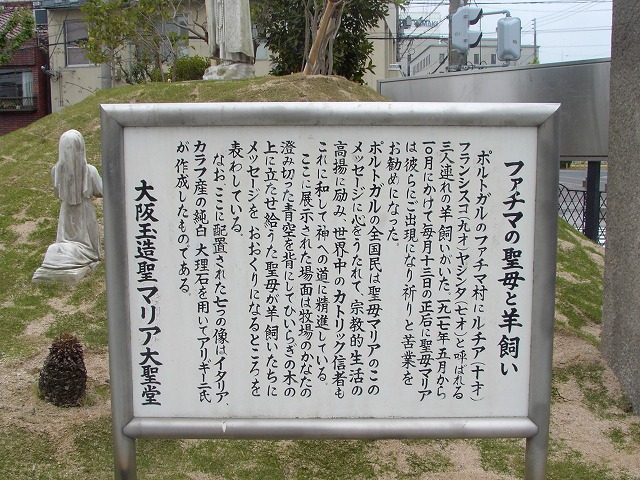 ファチマの聖母と羊飼い
ポルトガルのファチマ村にルチア(十才)
フランシスゴ(九才)ヤシンタ(七才)と呼ばれる
三人連れの羊飼いがいた一九一七年五月から
一〇月にかけて毎月十三日の正午に聖母マリア
は彼らにご出現になり祈りと苦業を
お勧めになった。
ポルトガルの全国民は聖母マリアのこの
メッセージに心をうたれて、宗教的生活の
高揚に励み、世界中のカトリック信者も
これに和して、神への道に精進している。
ここに展示された場面は牧場のかなたの
澄み切った青空を背にしてひいらぎの木の
上に立たせ給うた聖母が羊飼いたちに
メッセージを おおくりになるところを
表わしている。
なお ここに配置された七つの像はイタリア、
カラフ産の純白 大理石を用いてアリギーニ氏
が作成したものである。
大阪玉造聖マリア大聖堂